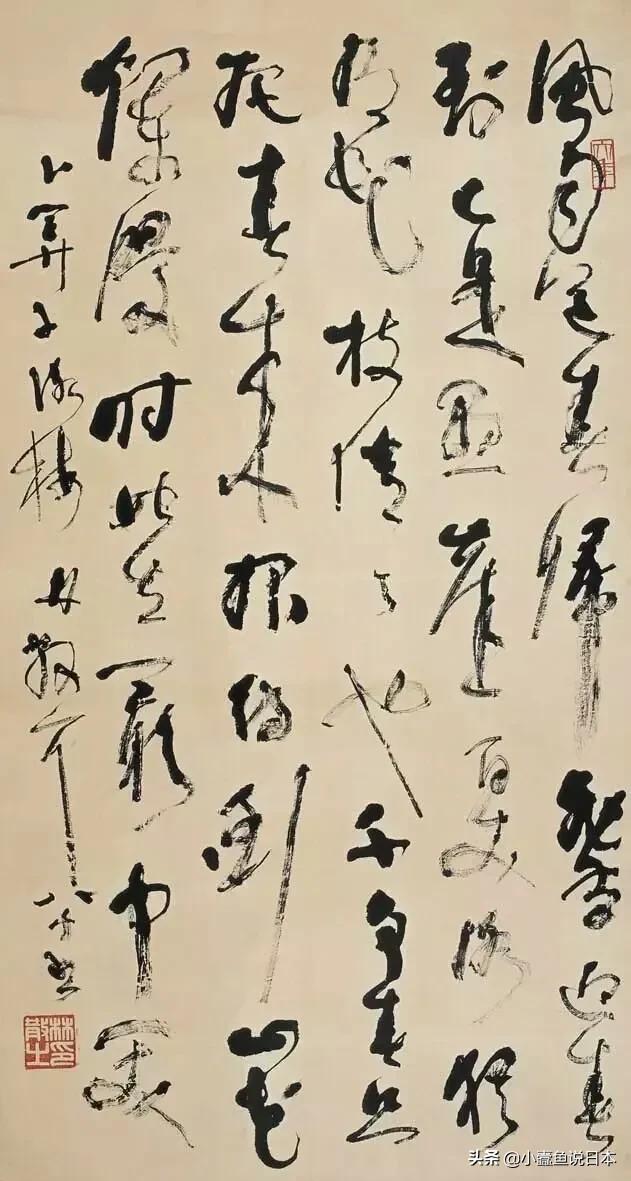 風雨送春歸飛雪迎春
到已是懸崖百丈冰猶
有花枝俏々也不争春只
把春來報待到山花
爛漫時她在叢中笑
卜算子詠梅 林散耳
林散之印
头条 @小蠹鱼说日本